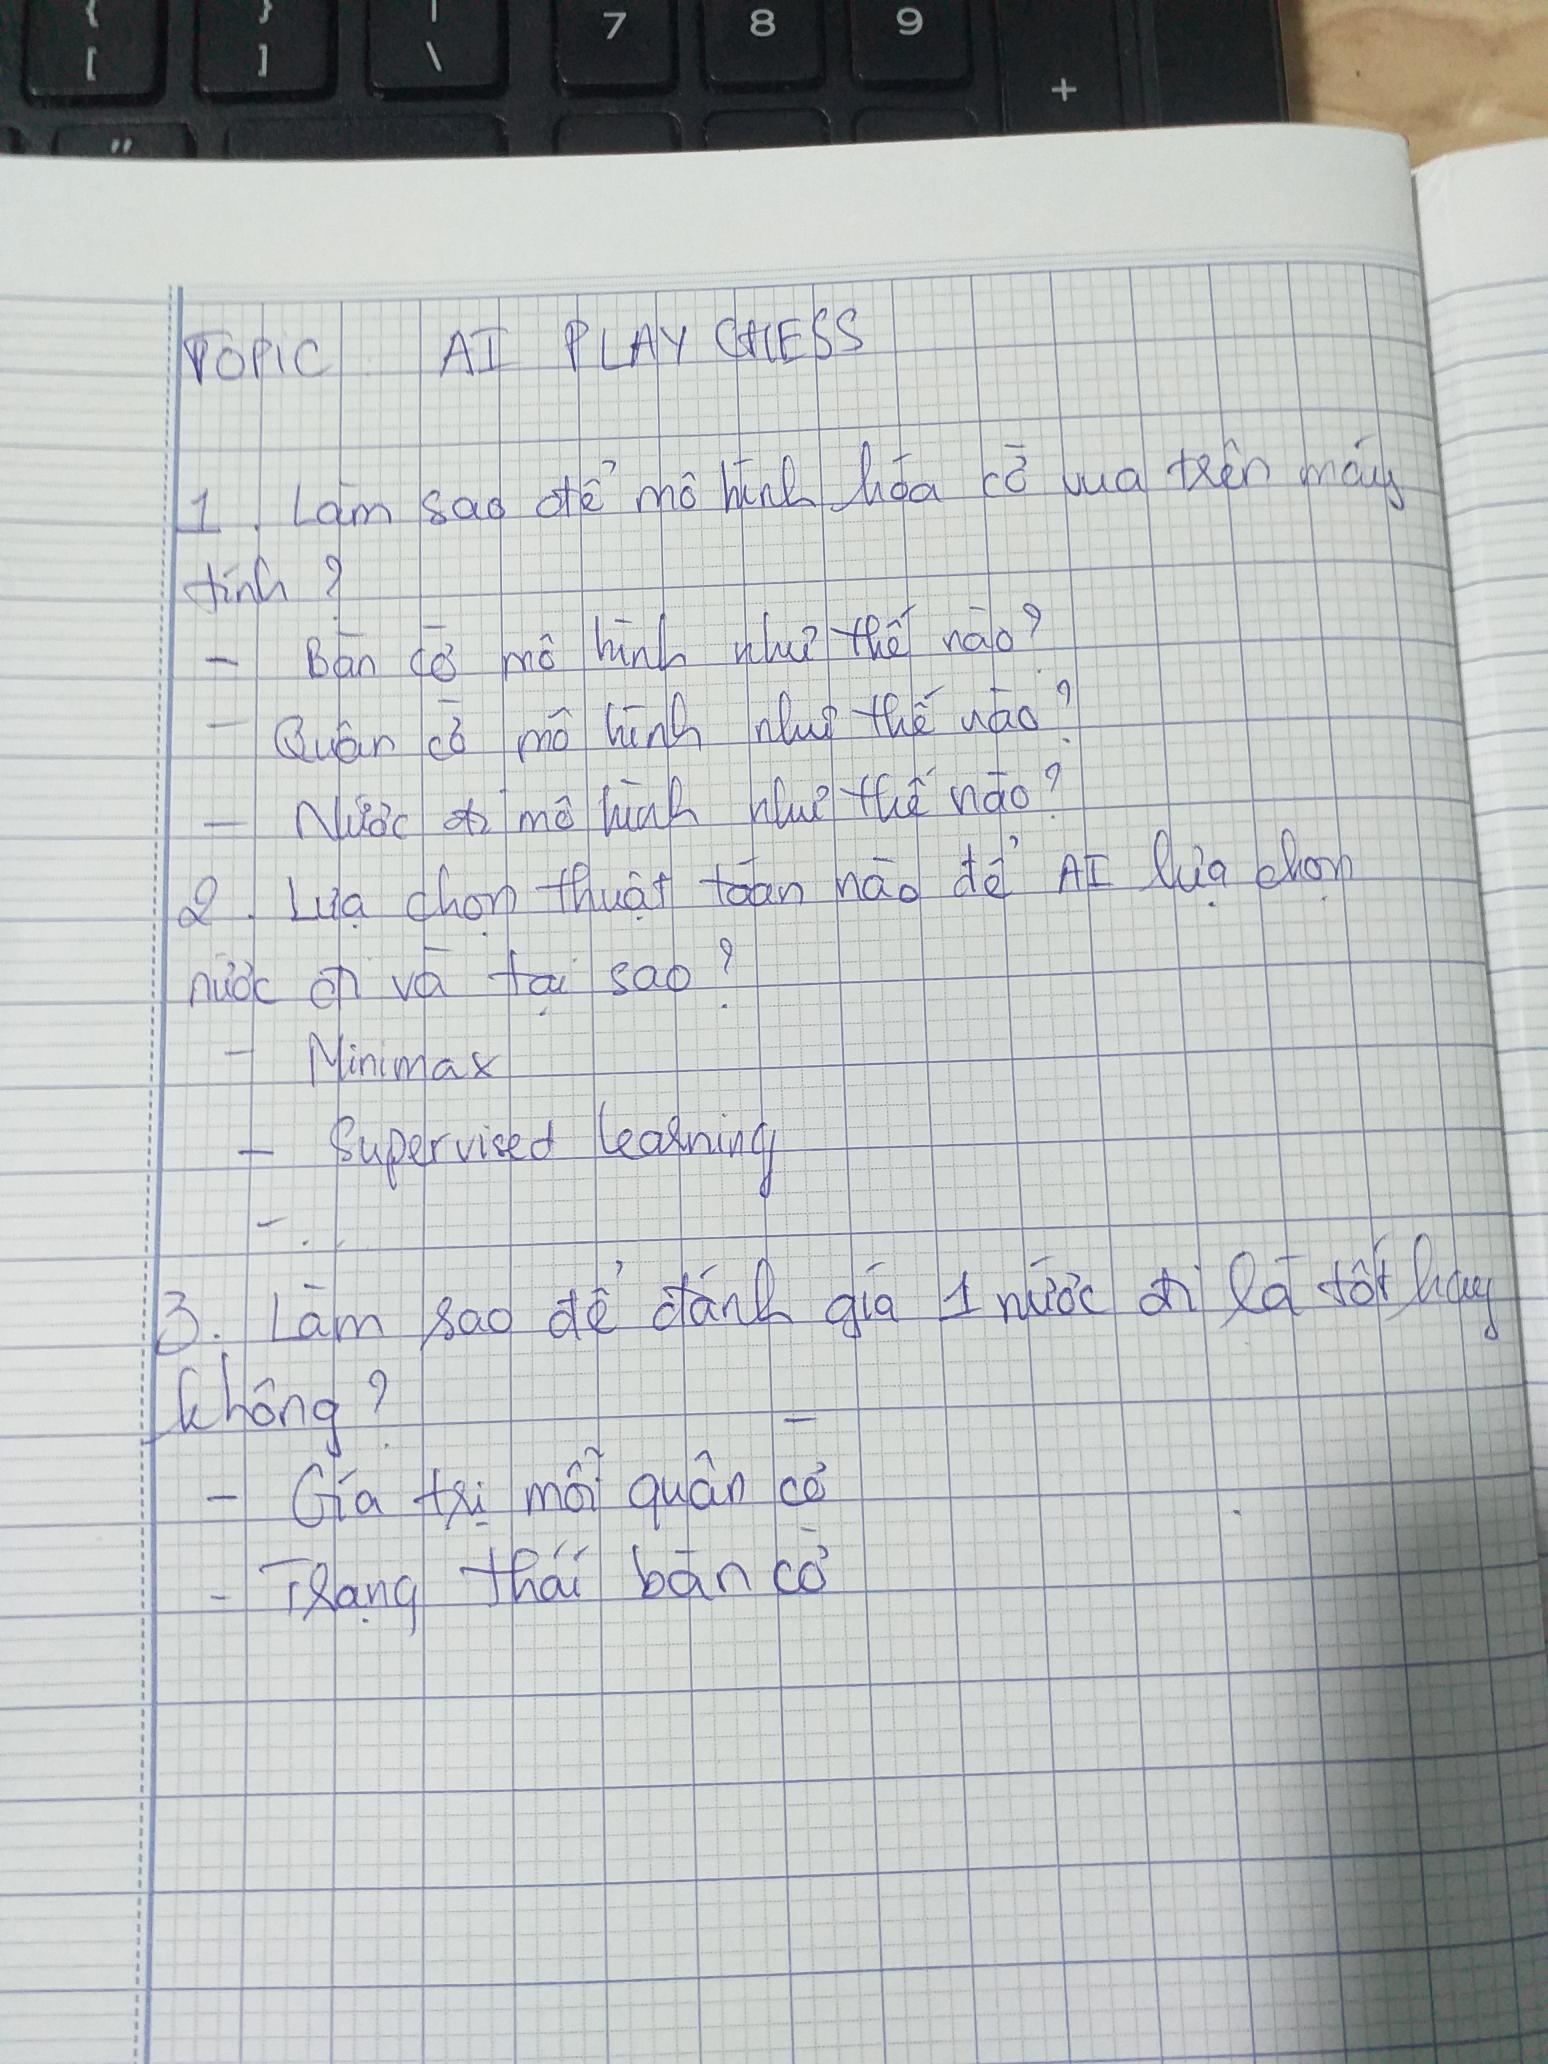 { } |
[ ] \ 7 8 9
+
"
TOPIC AI PLAY CHESS
1. Làm sao để mô hình hóa cờ vua trên máy
tính?
- Bàn cờ mô hình như thế nào?
- Quân cờ mô hình như thế nào?
- Nước đi mô hình như thế nào?
2. Lựa chọn thuật toán nào để AI lựa chọn
nước đi và tại sao?
- Minimax
- Supervised learning
- ...
3. Làm sao để đánh giá 1 nước đi là tốt hay
không?
- Gía trị mỗi quân cờ
- Trạng thái bàn cờ